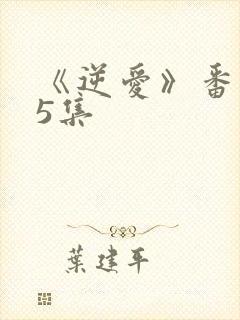 《逆愛》番
5集
葉建平